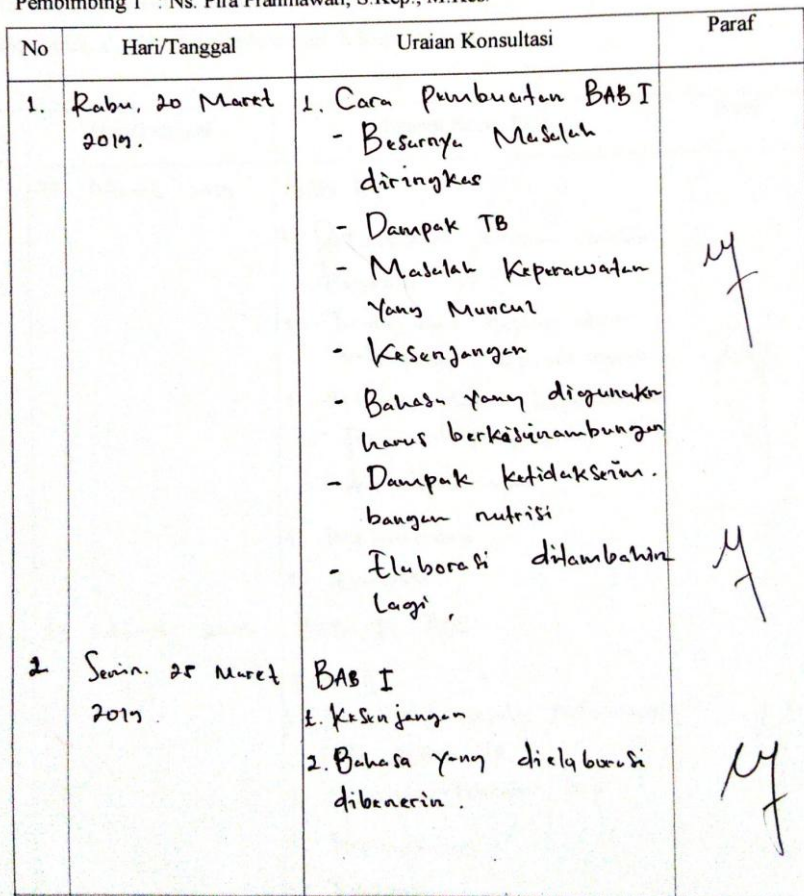 Pembimbing 1 : Ns. Pira Prahmawati, S.Kep., M.Kes.
No Hari/Tanggal Uraian Konsultasi Paraf
1. Rabu, 20 Maret 1. Cara Pembuatan BAB I
2019. - Besarnya Masalah
diringkas
- Dampak TB
- Masalah Keperawatan
Yang Muncul
- Kesenjangan
- Bahasa yang digunakn
harus berkesinambungan
- Dampak ketidakseim.
bangan nutrisi
- Elaborasi ditambahin
Lagi.
2 Senin. 25 Maret BAB I
2019. 1. Kesenjangan
2. Bahasa yang dielaborasi
dibenerin.